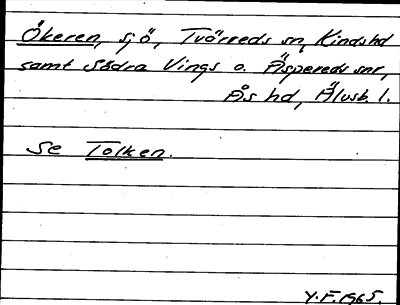 Åkeren, sjö, Tvärreds sn, Kinds hd
samt Södra Vings o. Äspereds snr,
Ås hd, Älvsb. l.
Se Tolken.
Y.F. 1965.